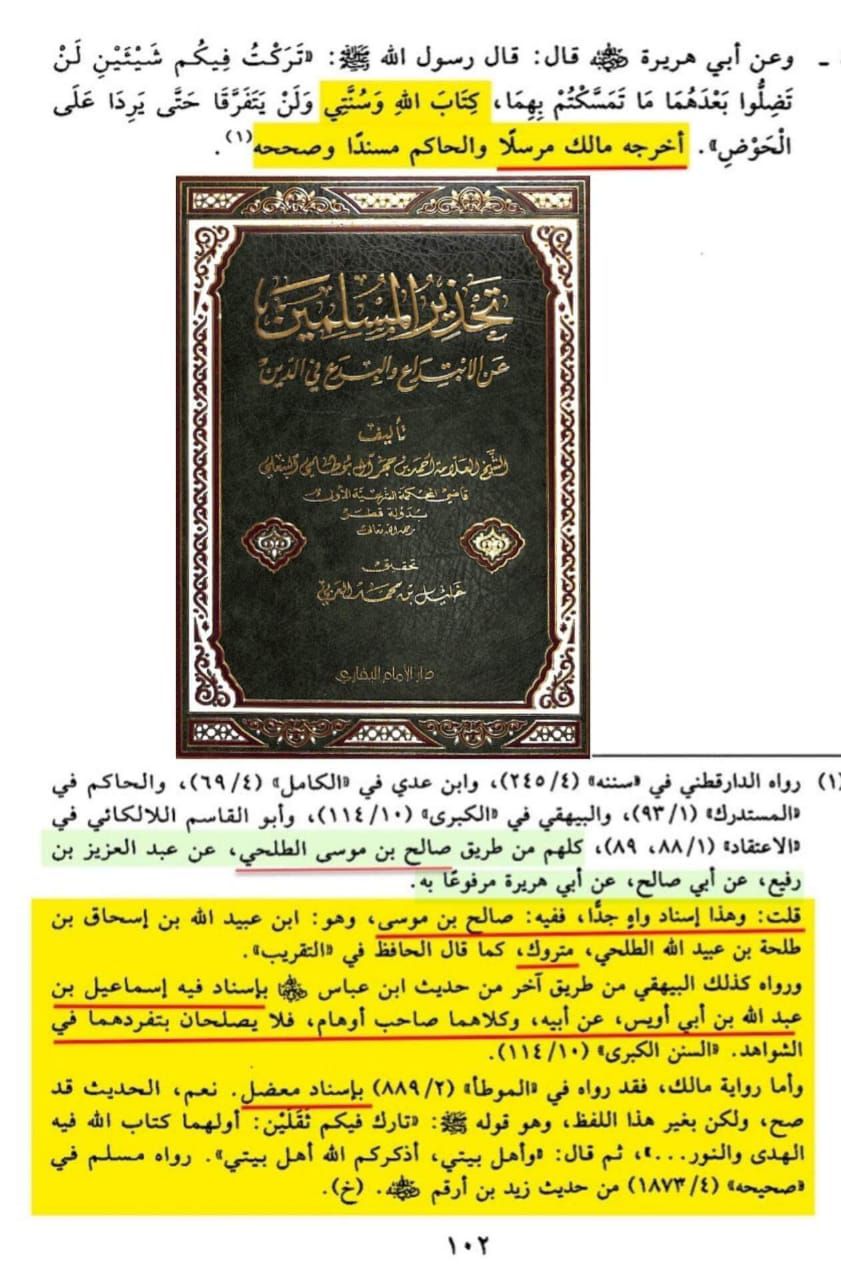 ـ وعن أبي هريرة رضي الله عنه قال: قال رسول الله ﷺ: «تَرَكْتُ فِيكُم شَيْئَيْنِ لَنْ
تَضِلُّوا بَعْدَهُمَا مَا تَمَسَّكْتُمْ بِهِمَا، كِتَابَ اللهِ وَسُنَّتِي وَلَنْ يَتَفَرَّقَا حَتَّى يَرِدَا عَلَى
الْحَوْضِ». أخرجه مالك مرسلًا والحاكم مسندًا وصححه(١).
تحذير المسلمين
عن الابتداع والبدع في الدين
تأليف
الشيخ العلامة أحمد بن حجر آل بوطامي البنعلي
قاضي المحكمة الشرعية الأولى
بدولة قطر
رحمه الله تعالى
تحقيق
خليل بن محمد العربي
دار الإمام البخاري
(١) رواه الدارقطني في «سننه» (٢٤٥/٤)، وابن عدي في «الكامل» (٦٩/٤)، والحاكم في
«المستدرك» (٩٣/١)، والبيهقي في «الكبرى» (١١٤/١٠)، وأبو القاسم اللالكائي في
«الاعتقاد» (٨٨/١، ٨٩)، كلهم من طريق صالح بن موسى الطلحي، عن عبد العزيز بن
رفيع، عن أبي صالح، عن أبي هريرة مرفوعًا به.
قلت: وهذا إسناد واهٍ جدًّا، ففيه: صالح بن موسى، وهو: ابن عبيد الله بن إسحاق بن
طلحة بن عبيد الله الطلحي، متروك، كما قال الحافظ في «التقريب».
ورواه كذلك البيهقي من طريق آخر من حديث ابن عباس رضي الله عنهما بإسناد فيه إسماعيل بن
عبد الله بن أبي أويس، عن أبيه، وكلاهما صاحب أوهام، فلا يصلحان بتفردهما في
الشواهد. «السنن الكبرى» (١١٤/١٠).
وأما رواية مالك، فقد رواه في «الموطأ» (٨٨٩/٢) بإسناد معضل. نعم، الحديث قد
صح، ولكن بغير هذا اللفظ، وهو قوله ﷺ: «تارك فيكم ثَقَلَيْن: أولهما كتاب الله فيه
الهدى والنور...»، ثم قال: «وأهل بيتي، أذكركم الله أهل بيتي». رواه مسلم في
«صحيحه» (١٨٧٣/٤) من حديث زيد بن أرقم رضي الله عنه. (خ).
١٠٢